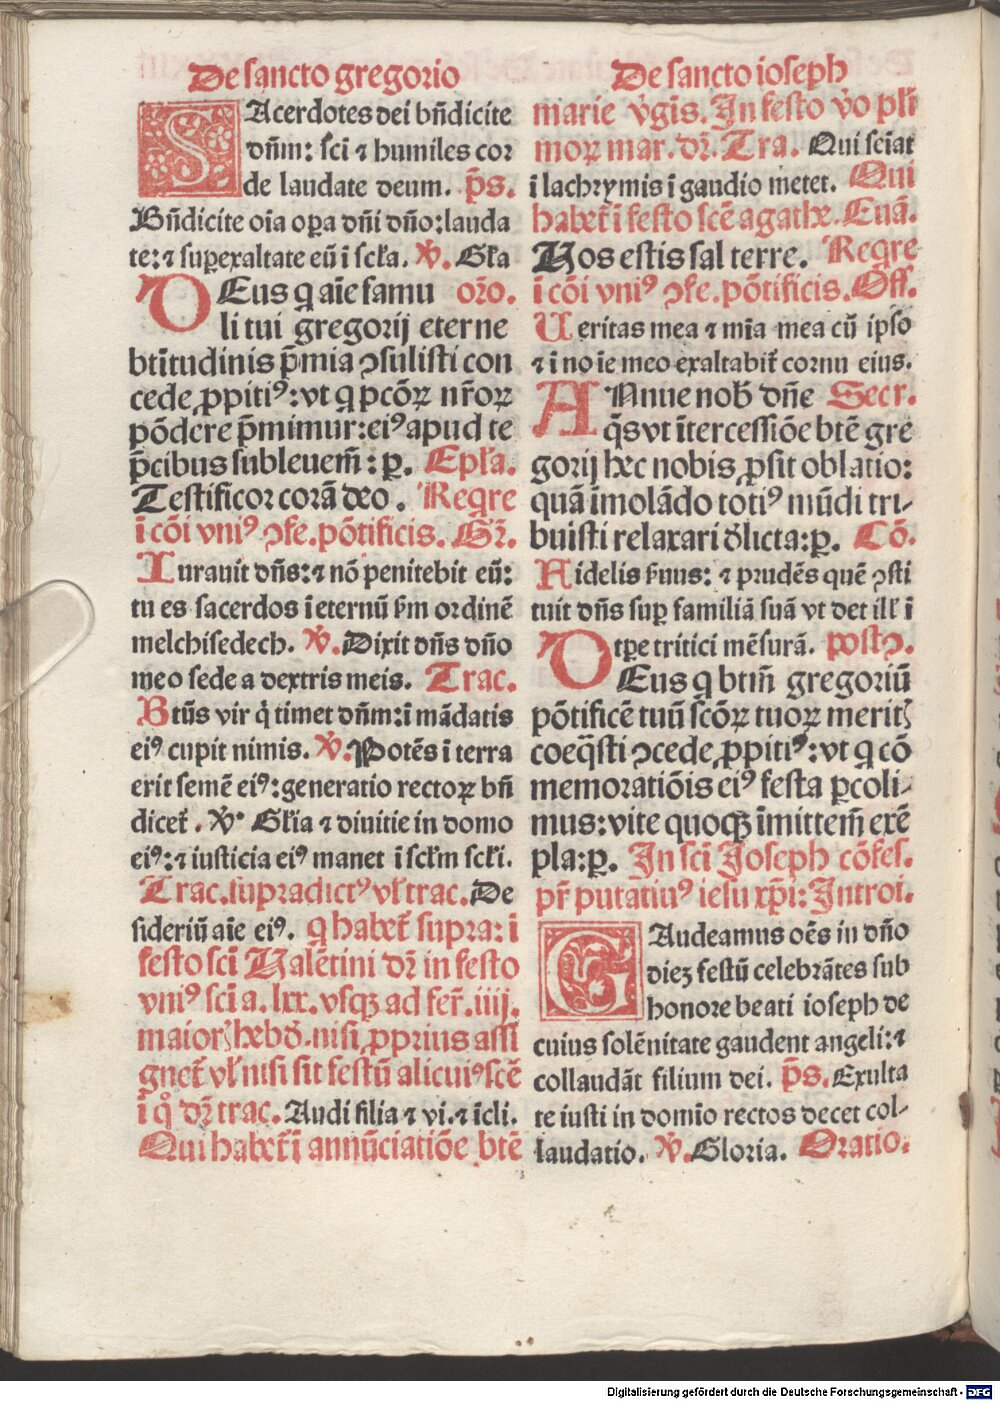 De sancto gregorio
SAcerdotes dei bn̄dicite
dn̄m: sc̄i ⁊ humiles cor
de laudate deum. p̄s.
Bn̄dicite oīa oꝑa dn̄i dn̄o: lauda
te: ⁊ suꝑexaltate eū ī scl̄a. ℣. Gl̄a
DEus q̄ aīe famu or̄o.
li tui gregorij eterne
btītudinis p̄mia ꝯsulisti con
cede ꝓpitiꝰ: vt q̄ pcōꝝ nr̄oꝝ
pōdere p̄mimur: eiꝰ apud te
p̄cibus subleuem̄: ꝑ. Epl̄a.
Testificor corā deo. Reqre
ī cōi vniꝰ ꝯfe. pōtificis. Gr̄.
Iurauit dn̄s: ⁊ nō penitebit eū:
tu es sacerdos ī eternū ẜm ordinē
melchisedech. ℣. Dixit dn̄s dn̄o
meo sede a dextris meis. Trac.
Btūs vir q̄ timet dn̄m: ī mādatis
eiꝰ cupit nimis. ℣. Potēs ī terra
erit semē eiꝰ: generatio rectoꝝ bn̄
dicet̄. ℣. Gl̄ia ⁊ diuitie in domo
eiꝰ: ⁊ iusticia eiꝰ manet ī scl̄m scl̄i.
Trac. supradictꝰ vl̄ trac. De
sideriū aīe eiꝰ. q̄ habet̄ supra: ī
festo sc̄i Valētini dr̄ in festo
vniꝰ sc̄i a. lxx. vsqꝫ ad fer̄. iiij.
maiorꝭ hebd̄. nisi ꝓprius assi
gnet̄ vl̄ nisi sit festū alicuiꝰ scē
ī q̊ dr̄ trac. Audi filia ⁊ vi. ⁊ īcli.
Qui habet̄ ī annūciatiōe btē
De sancto ioseph
marie v̄gīs. In festo v̄o pl̄ī
moꝝ mar. dr̄. Tra. Qui seīāt
ī lachrymis ī gaudio metet. Qui
habet̄ ī festo scē agathe. Euā.
Uos estis sal terre. Reqre
ī cōi vniꝰ ꝯfe. pōtificis. Off.
Ueritas mea ⁊ mīa mea cū ipso
⁊ ī noīe meo exaltabit̄ cornu eius.
ANnue nob̄ dn̄e Secr.
q̄s vt ītercessiōe btē gre
gorij hec nobis ꝓsit oblatio:
quā īmolādo totiꝰ mūdi tri-
buisti relaxari d̄licta: ꝑ. Cō.
Fidelis ẜuus: ⁊ prudēs quē ꝯsti
tuit dn̄s suꝑ familiā suā vt det ill̄ ī
tꝑe tritici mēsurā. postꝯ.
DEus q̄ btm̄ gregoriū
pōtificē tuū scōꝝ tuoꝝ meritꝭ
coeq̄sti ꝯcede ꝓpitiꝰ: vt q̄ cō
memoratiōis eiꝰ festa ꝑcoli-
mus: vite quoqꝫ īmittem̄ exē
pla: ꝑ. In sc̄i Ioseph cōfes.
pr̄ putatiuꝰ iesu xp̄i: Introi.
GAudeamus oēs in dn̄o
diez festū celebrātes sub
honore beati ioseph de
cuius solēnitate gaudent angeli: ⁊
collaudāt filium dei. p̄s. Exulta
te iusti in domīo rectos decet col-
laudatio. ℣. Gloria. Oratio.
Digitalisierung gefördert durch die Deutsche Forschungsgemeinschaft - DFG